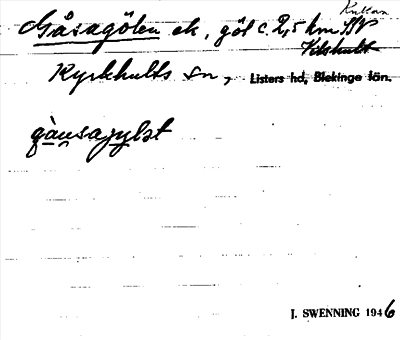 Kullan
Gåsagölen ek, göl c. 2,5 km NV
Vilshult
Kyrkhults sn, Listers hd, Blekinge län.
gȧu̯sajylət
J. SWENNING 1946